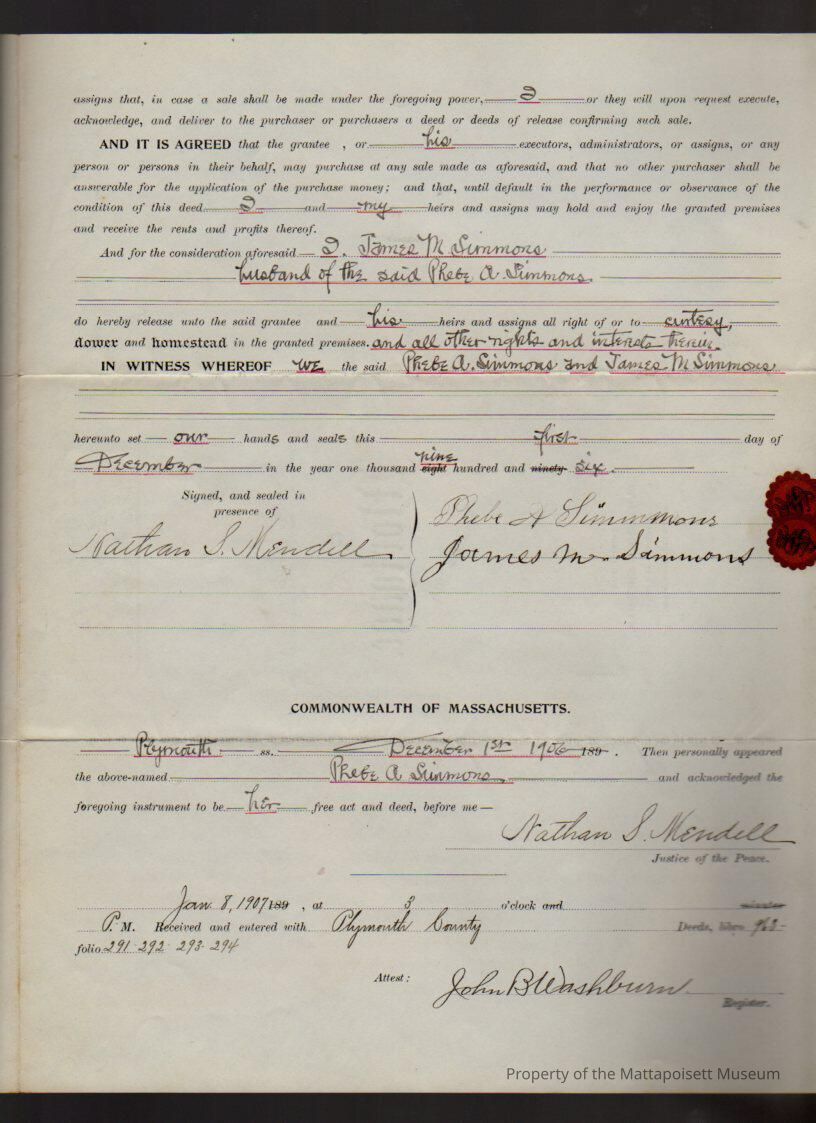 assigns that, in case a sale shall be made under the foregoing power, I or they will upon request execute,
acknowledge, and deliver to the purchaser or purchasers a deed or deeds of release confirming such sale.
AND IT IS AGREED that the grantee , or his executors, administrators, or assigns, or any
person or persons in their behalf, may purchase at any sale made as aforesaid, and that no other purchaser shall be
answerable for the application of the purchase money; and that, until default in the performance or observance of the
condition of this deed I and my heirs and assigns may hold and enjoy the granted premises
and receive the rents and profits thereof.
And for the consideration aforesaid I, James M Simmons
husband of the said Phebe A. Simmons.
do hereby release unto the said grantee and his heirs and assigns all right of or to curtesy,
dower and homestead in the granted premises. and all other rights and interests therein.
IN WITNESS WHEREOF we the said Phebe A. Simmons and James M Simmons
hereunto set our hands and seals this first day of
December in the year one thousand eight nine hundred and ninety six.
Signed, and sealed in
presence of
Phebe A Simmmons
Nathan S. Mendell
James M. Simmons
COMMONWEALTH OF MASSACHUSETTS.
Plymouth ss. December 1st 1906 189 . Then personally appeared
the above-named Phebe A Simmons and acknowledged the
foregoing instrument to be her free act and deed, before me —
Nathan S. Mendell
Justice of the Peace.
Jan. 8, 1907 189 , at 3 o'clock and minutes
P. M. Received and entered with Plymouth County Deeds, libro 963
folio 291 292 293 294
Attest: John B Washburn
Register.
Property of the Mattapoisett Museum